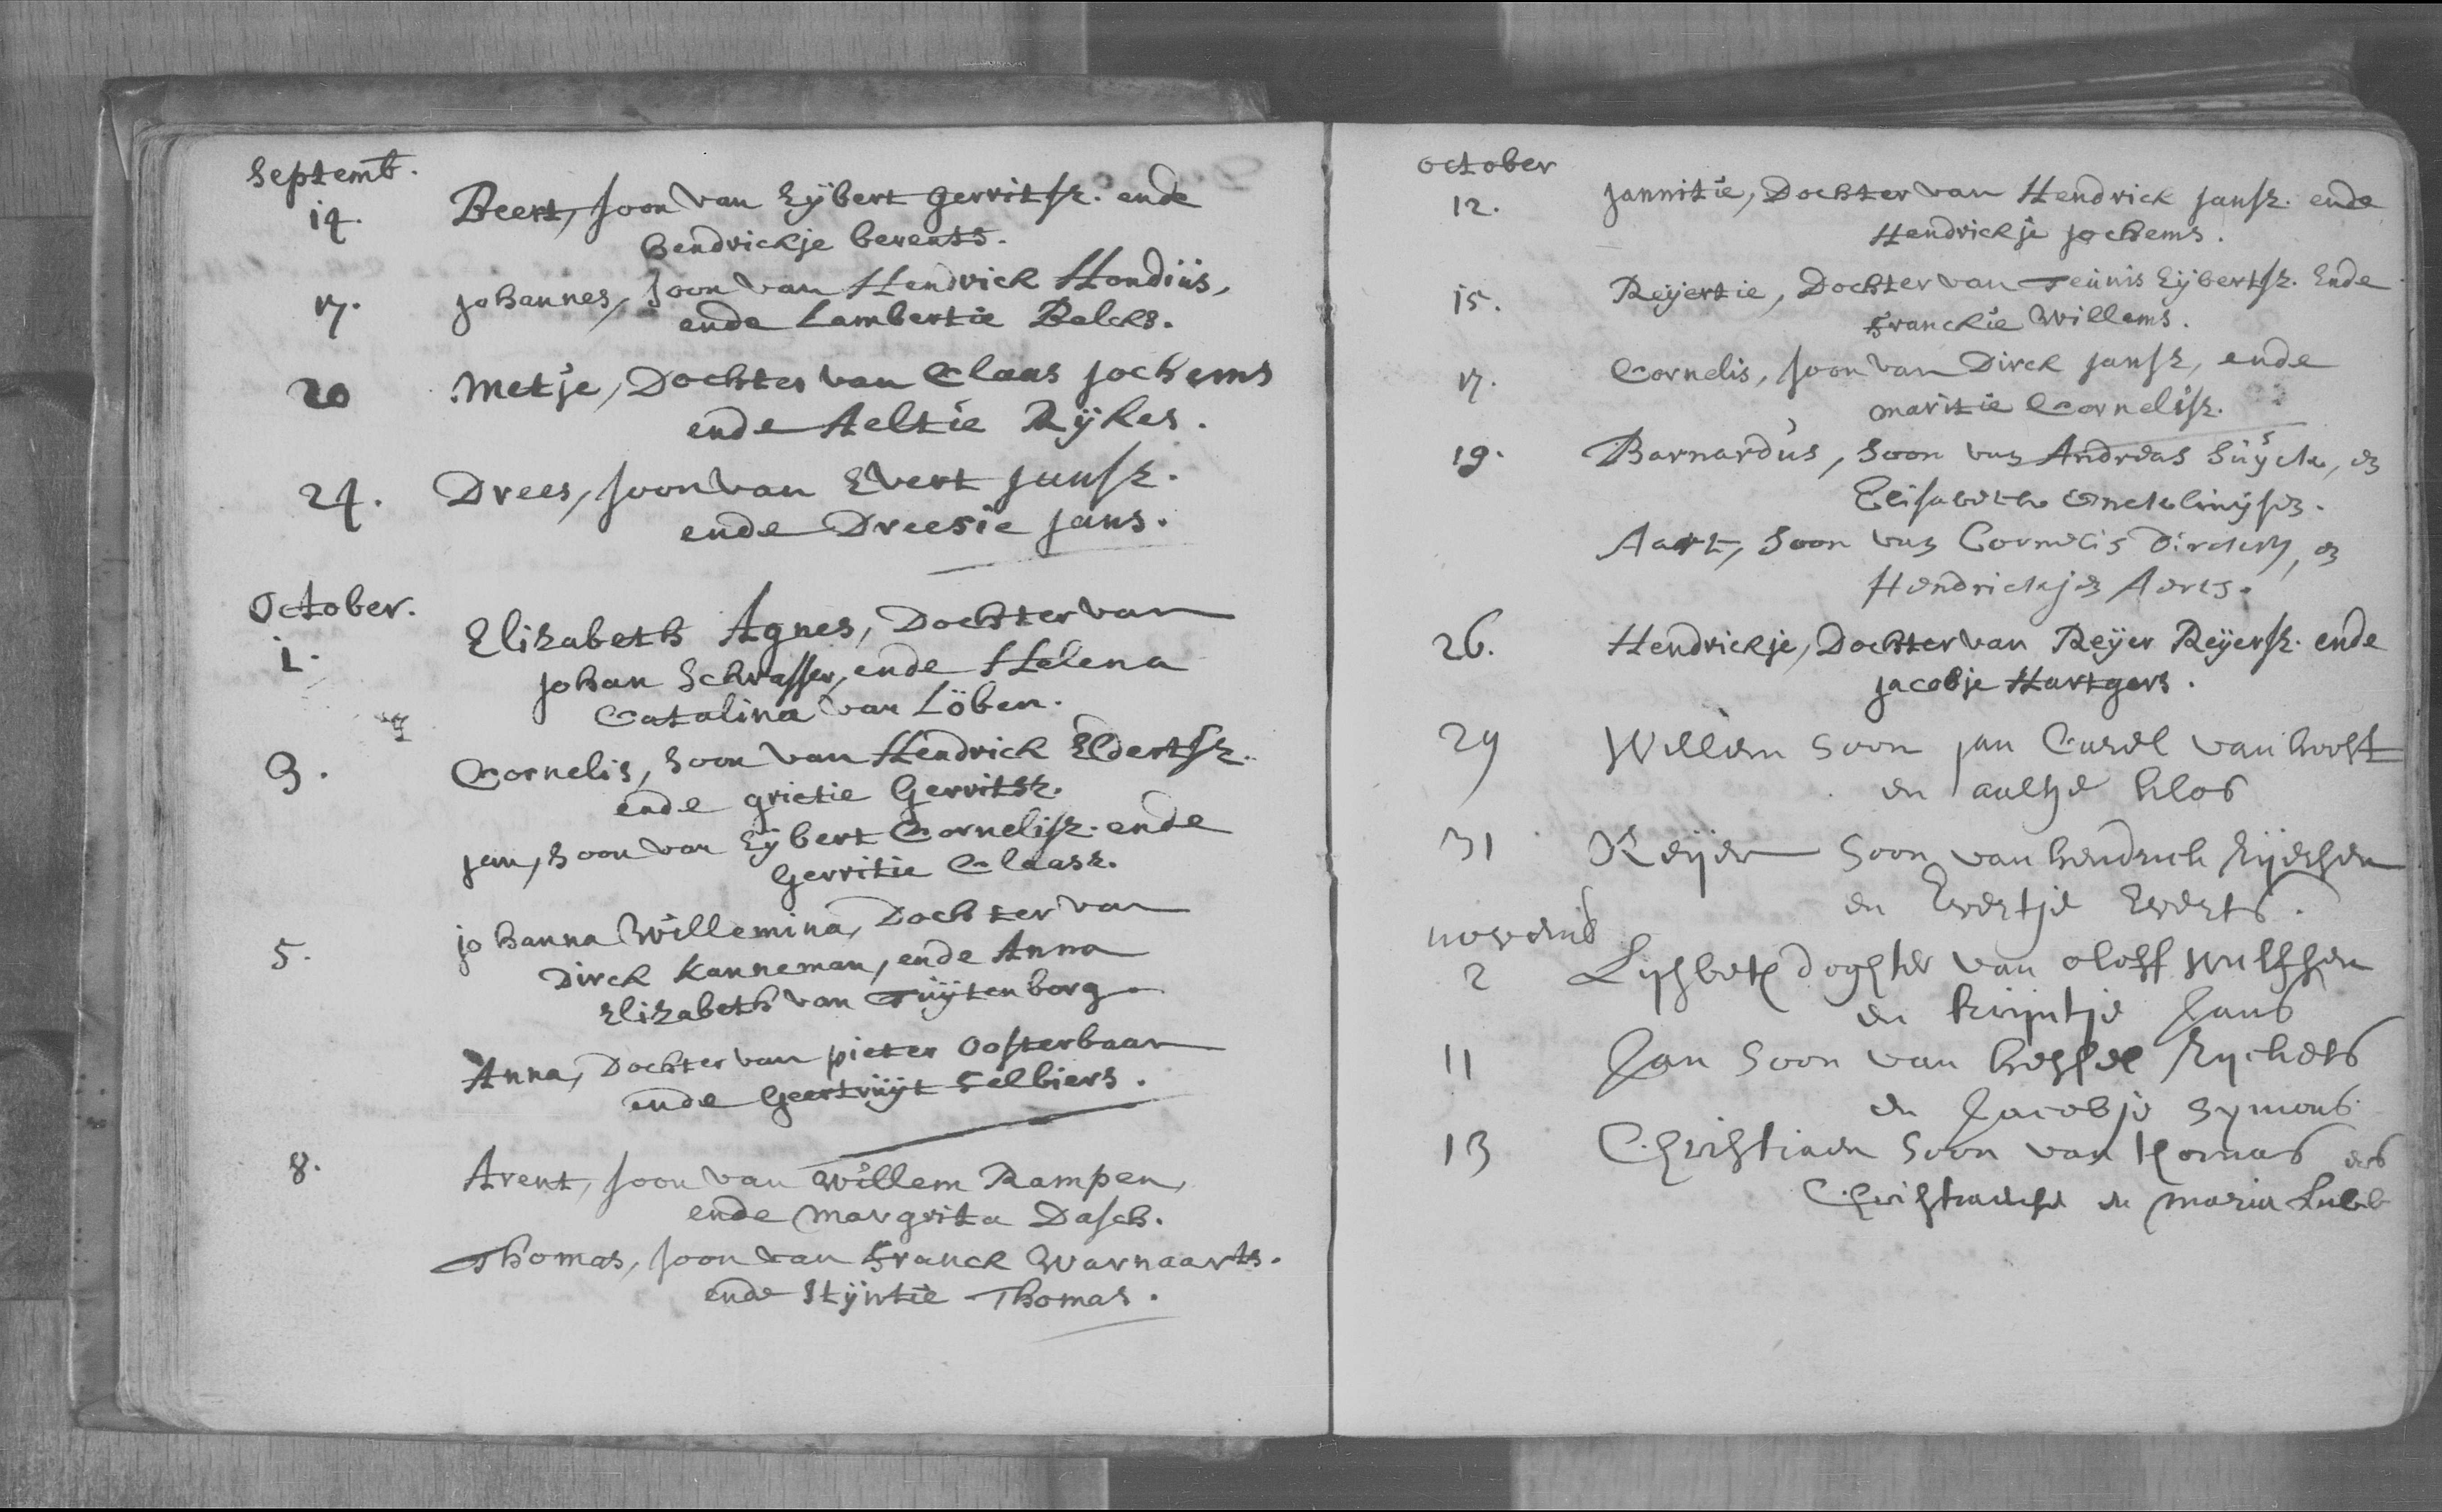 Septemb.
14. Beert, soon van Eijbert gerritsz. ende
Hendrickje berents.
17. Johannes, soon van Hendrick Hondius,
ende Lambertie Balcks.
20 Metje, Dochter van Claas Jochems
ende Aeltie Rijkes.
24. Drees, soon van Evert Jansz.
ende Dreesie Jans.
October.
1. Elizabeth Agnes, Dochter van
Johan Schrasser, ende Helena
Catalina van Löben.
3. Cornelis, soon van Hendrick Eldertsz.
ende grietie Gerritsz.
Jan, soon van Eijbert Cornelisz. ende
Gerritie Claasz.
5. Johanna Willemina, Dochter van
Dirck Kanneman, ende Anna
Elizabeth van Tuijtenborg.
Anna, Dochter van pieter Oosterbaan
ende Geertruijt Selbiers.
8. Arent, soon van Willem Rampen,
ende Margrita Dasch.
Thomas, soon van Franck Warnaarts.
ende Stijntie Thomas.
october
12. Jannitie, Dochter van Hendrick Jansz. ende
Hendrickje Jochems.
15. Reijertie, Dochter van Teunis Eijbertsz. Ende
Franckie Willems.
17. Cornelis, soon van Dirck Jansz, ende
Maritie Cornelisz.
19. Barnardus, Soon van Andreas Suyck, en
Elisabeth
Aart, Soon van Cornelis Dircksz, en
Hendrickjen Aerts.
26. Hendrickje, Dochter van Reijer Reijersz. ende
Jacobje Hartgers.
29 Willem soon Jan Carel van hooft
en aeltje Clos
31 Reijer soon van hendrick Rijersen
en Evertje Everts.
novemb
2 Lysbeth dochter van oloff Wulfsen
en trijntje Jans
11 Jan soon van hessel Ryckets
en Jacobje Symons.
13 Christiaen soon van thomas
en Maria